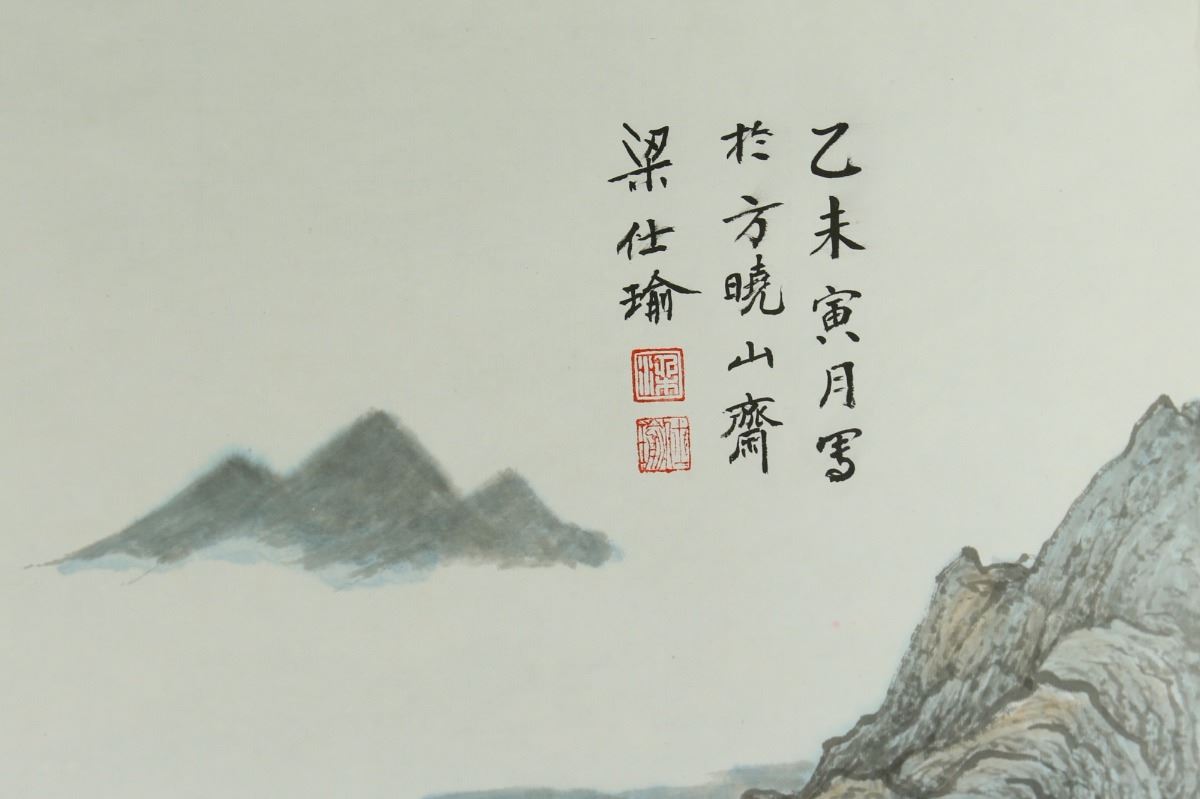 乙未寅月写
於方曉山齋
梁仕瑜
梁
仕瑜